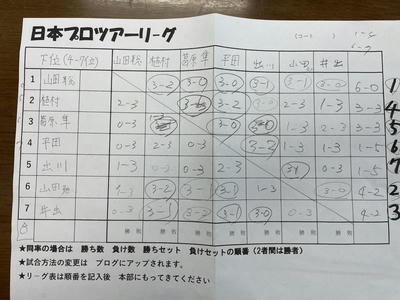 日本プロツアーリーグ
下位(4-7位) 山田聡 植村 葛原隼 平田 出川 小田 井出
1 山田聡 3-2 3-0 3-0 3-1 3-1 6-0 1
2 植村 2-3 3-2 2-3 1-3 3-3 4
3 葛原隼 0-3 3-0 1-3 2-3 3-3 5
4 平田 0-3 2-3 0-3 3-2 1-3 1-3 1-5 6
5 出川 1-3 0-3 2-3 3-1 0-3 1-5 7
6 1-3 3-2 3-1 3-1 1-3 3-0 4-2 2
7 井出 0-3 3-1 3-2 3-1 3-0 0-3 4-2 3
8 勝 敗
★同率の場合は 勝ち数 負け数 勝ちセット 負けセットの順番(2者間は勝者)
★試合方法の変更は ブログにアップされます。
★リーグ表は順番を記入後 本部にもってきてください